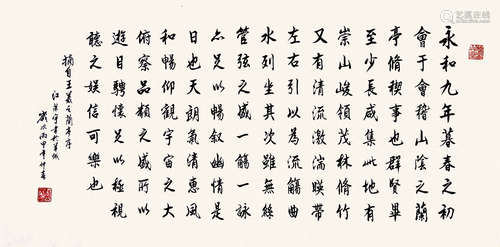 永和九年暮春之初
會于會稽山陰之蘭
亭脩稧事也群賢畢
至少長咸集此地有
崇山峻領茂林脩竹
又有清流激湍暎帶
左右引以為流觴曲
水列坐其次雖無絲
管弦之盛一觴一詠
亦足以暢叙幽情是
日也天朗氣清惠風
和暢仰觀宇宙之大
俯察品類之盛所以
遊目騁懷足以極視
聽之娛信可樂也
摘自王羲之蘭亭序
歲次丙申年仲春
艺狐在线